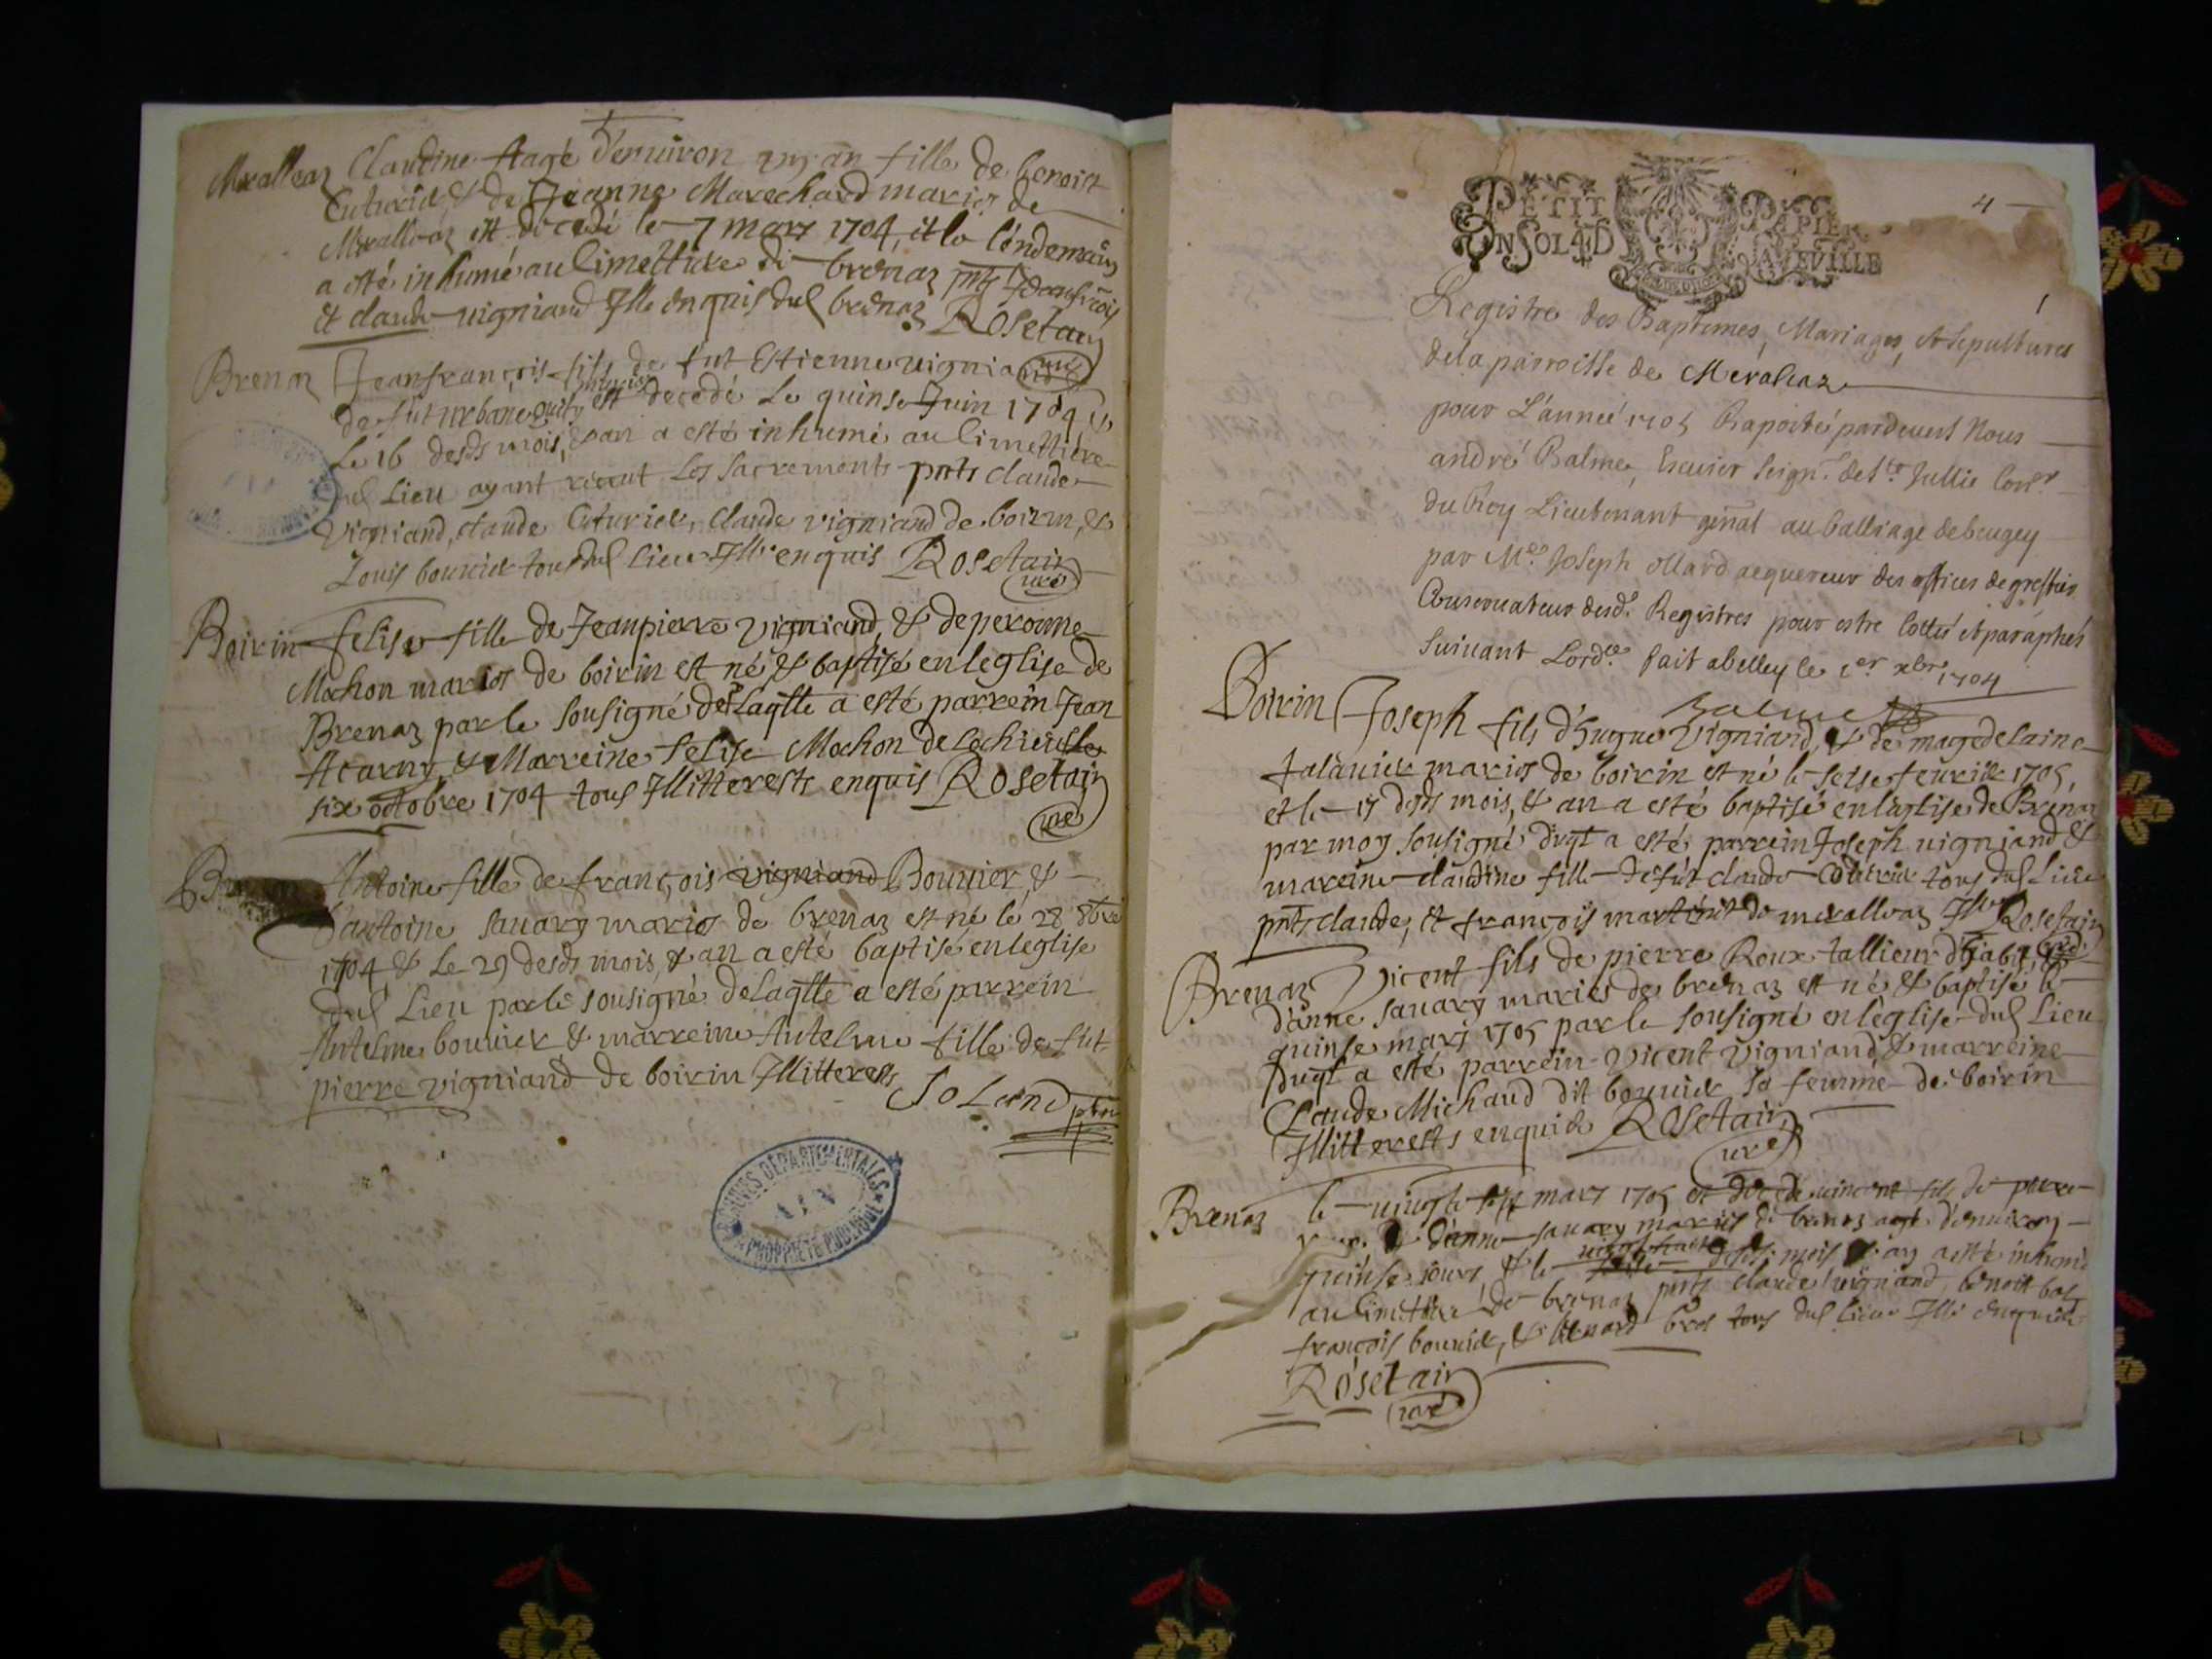 Meralleaz Claudine Aagé d'enuiron un an fille de benoist
Cuturier & de Jeanne Marechard mariés de
Meralleaz est decedé le 7 mars 1704, et le lendemain
a esté inhumé au Cimettiere de brenaz pnts Jeanfrançois
et claude vigniand Ille enquis dud brenaz Rosetain
curé
Brenaz Jeanfrançois fils de fut Estienne vigniand
de est decedé le quinse Juin 1704 &
Le 16 desds mois, & an a esté inhumé au Cimettiere
dud Lieu ayant receut les Sacrements pnts claude
Vigniand, claude Cuturier, claude vigniand de boirin, &
Louis bouvier tous dud lieu Ille enquis Rosetain
curé
Boirin felise fille de Jeanpierre vigniand, & de peronne
Mochon mariés de boirin est né & baptisé en leglise de
Brenaz par le sousigné de laqtte a esté parrein Jean
Acarry & Marreine felise Mochon de
six octobre 1704 tous Illitterests enquis Rosetain
curé
Antoine fille de françois vigniand Bouuier, &
d'antoine sauary mariés de brenaz est né le 28 8bre
1704 & le 29 desds mois, & an a esté baptisé en leglise
dud Lieu par le sousigné de laqtte a esté parrein
Antelme bouuier & marreine Antelme fille de fut
pierre vigniand de boirin Illitterests
Soland ptre
ARCHIVES DÉPARTEMENTALES
AIN
PROPRIÉTÉ PUBLIQUE
4
PETIT PAPIER
UN SOL 4 D LA FEUILLE
1
Registre des Baptemes, Mariages, & Sepultures
de la parroisse de Meraleaz
pour L'année 1705 Raporté pardeuent Nous
andré Balme, Escuier Seignr de Ste Jullie Conr
du Roy Lieutenant genal au balliage de beugey
par Me Joseph ollard acquereur des offices de greffier
Conseruateur desds Registres pour estre cottés et paraphés
suiuant Lordce fait a belley le 1er xbre 1704
Balme
Boirin Joseph fils d'hugue Vigniand, & de magdelaine
mariés de boirin est né le seise feurier 1705,
et le 17 desds mois, & an a esté baptisé en leglise de Brenaz
par moy sousigné duqt a esté parrein Joseph vigniand &
mareine claudine fille de fut claude Cuturier tous dud Lieu
pnts claude, et françois martinet de meralleaz Ille Rosetain
curé
Brenaz Vicent fils de pierre Roux tallieur d'habit &
d'anne sauary mariés de brenaz est né & baptisé le
quinse mars 1705 par le sousigné en leglise dud Lieu
duqt a esté parrein vicent vigniand & marreine
Claude Michaud dit bouuier sa femme de boirin
Illitterests enquis Rosetain
curé
Brenaz le vingt sept mars 1705 est decedé vincent fils de pierre
roux & d'anne sauary mariés de brenaz agé d'enuiron
quinse iours & le vingt huit desds mois & an a esté inhumé
au Cimettiere de brenaz pnts claude vigniand, benoit
françois bouuier, & tous dud lieu Ille enquis
Rosetain
curé